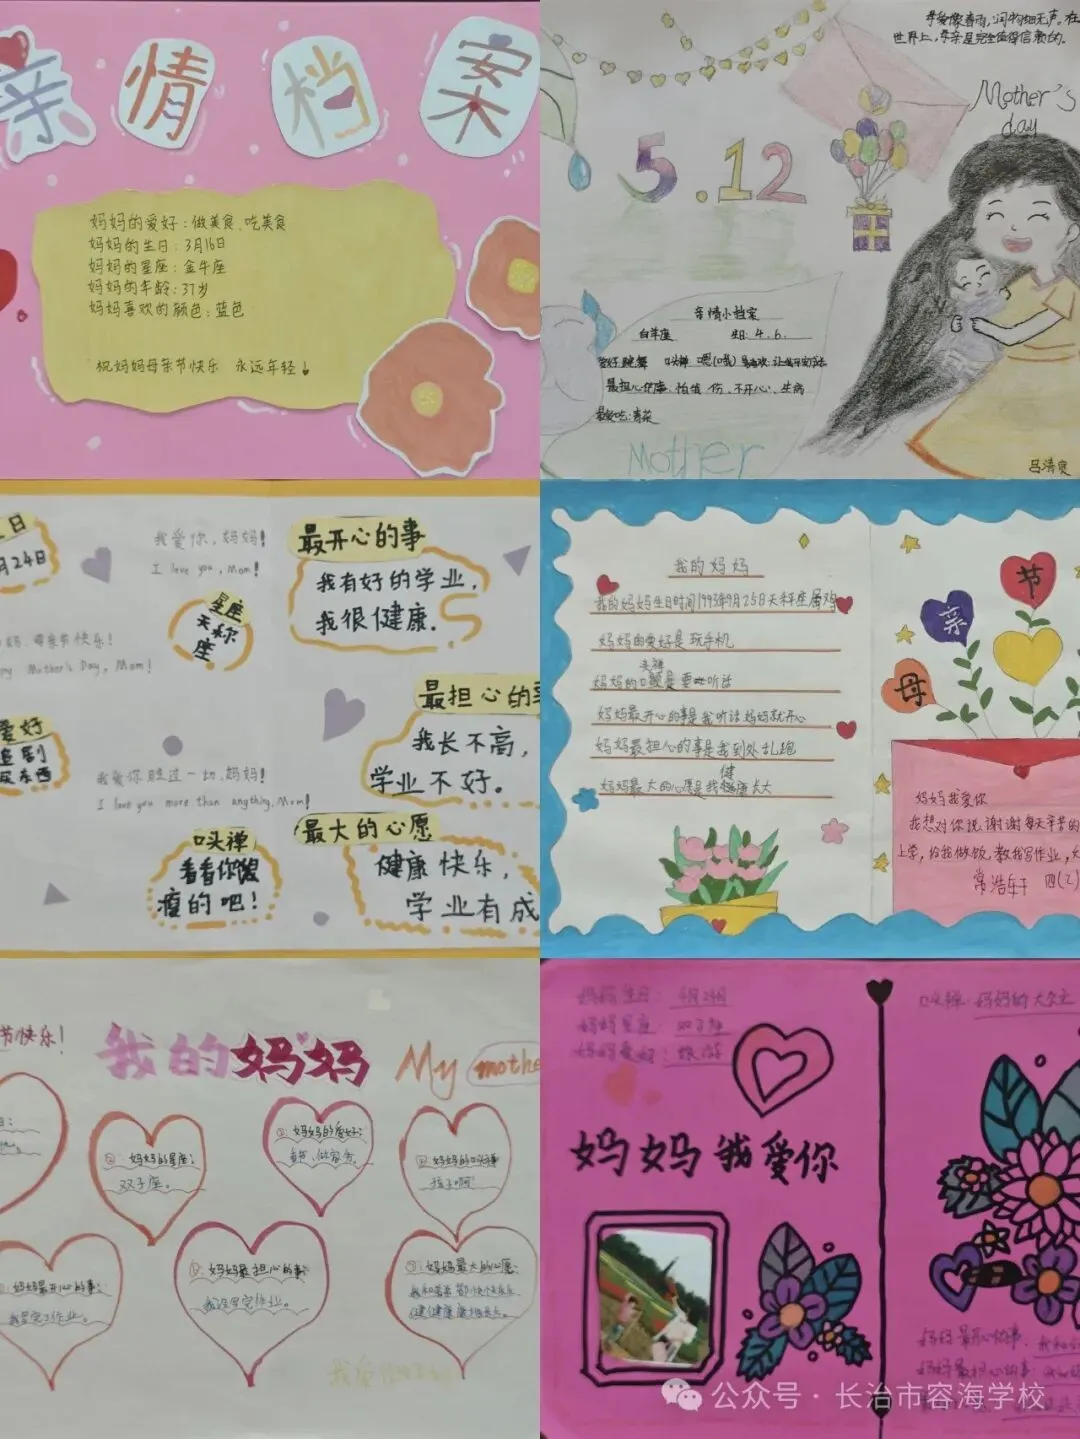 亲情档案
妈妈的爱好：做美食、吃美食
妈妈的生日：3月16日
妈妈的星座：金牛座
妈妈的年龄：37岁
妈妈喜欢的颜色：蓝色
祝妈妈母亲节快乐 永远年轻！
母爱像春雨，润物细无声。在
世界上，母亲是完全值得信赖的。
Mother's
day
5.12
亲情小档案
白羊座 生日：4.6.
最担心健康、怕值伤、不开心、生病
最爱吃：青菜
Mother
吕清爽
日
月24日
我爱你，妈妈！
I love you, Mom！
星座
天称
座
最开心的事
我有好的学业，
我很健康.
妈，母亲节快乐！
py Mother's Day, Mom！
爱好
追剧
买东西
最担心的事
我长不高，
学业不好.
我爱你胜过一切，妈妈！
I love you more than anything, Mom！
口头禅
看看你傻
瘦的吧！
最大的心愿
健康快乐，
学业有成
我的妈妈
我的妈妈生日时间1993年9月25日天秤座属鸡
妈妈的爱好是玩手机
妈妈的口头禅是要听话
妈妈最开心的事是我听话妈妈就开心
妈妈最担心的事是我到处乱跑
妈妈最大的心愿是我健康长大
母亲节
妈妈我爱你
我想对你说，谢谢每天辛苦的
上学，给我做饭，教我写作业，
节快乐！
我的妈妈 My mothe
②：妈妈的星座：
双子座。
①：妈妈的爱好：
妈妈的口头禅
妈妈最开心的事：
我写完了作业。
妈妈最担心的事：
我没写完作业。
妈妈最大的心愿：
妈妈生日：4月24日
妈妈星座：
妈妈爱好：旅游
口头禅：妈妈的大宝
妈妈我爱你
妈妈最开心的事：
妈妈最担心的事：
公众号·长治市容海学校